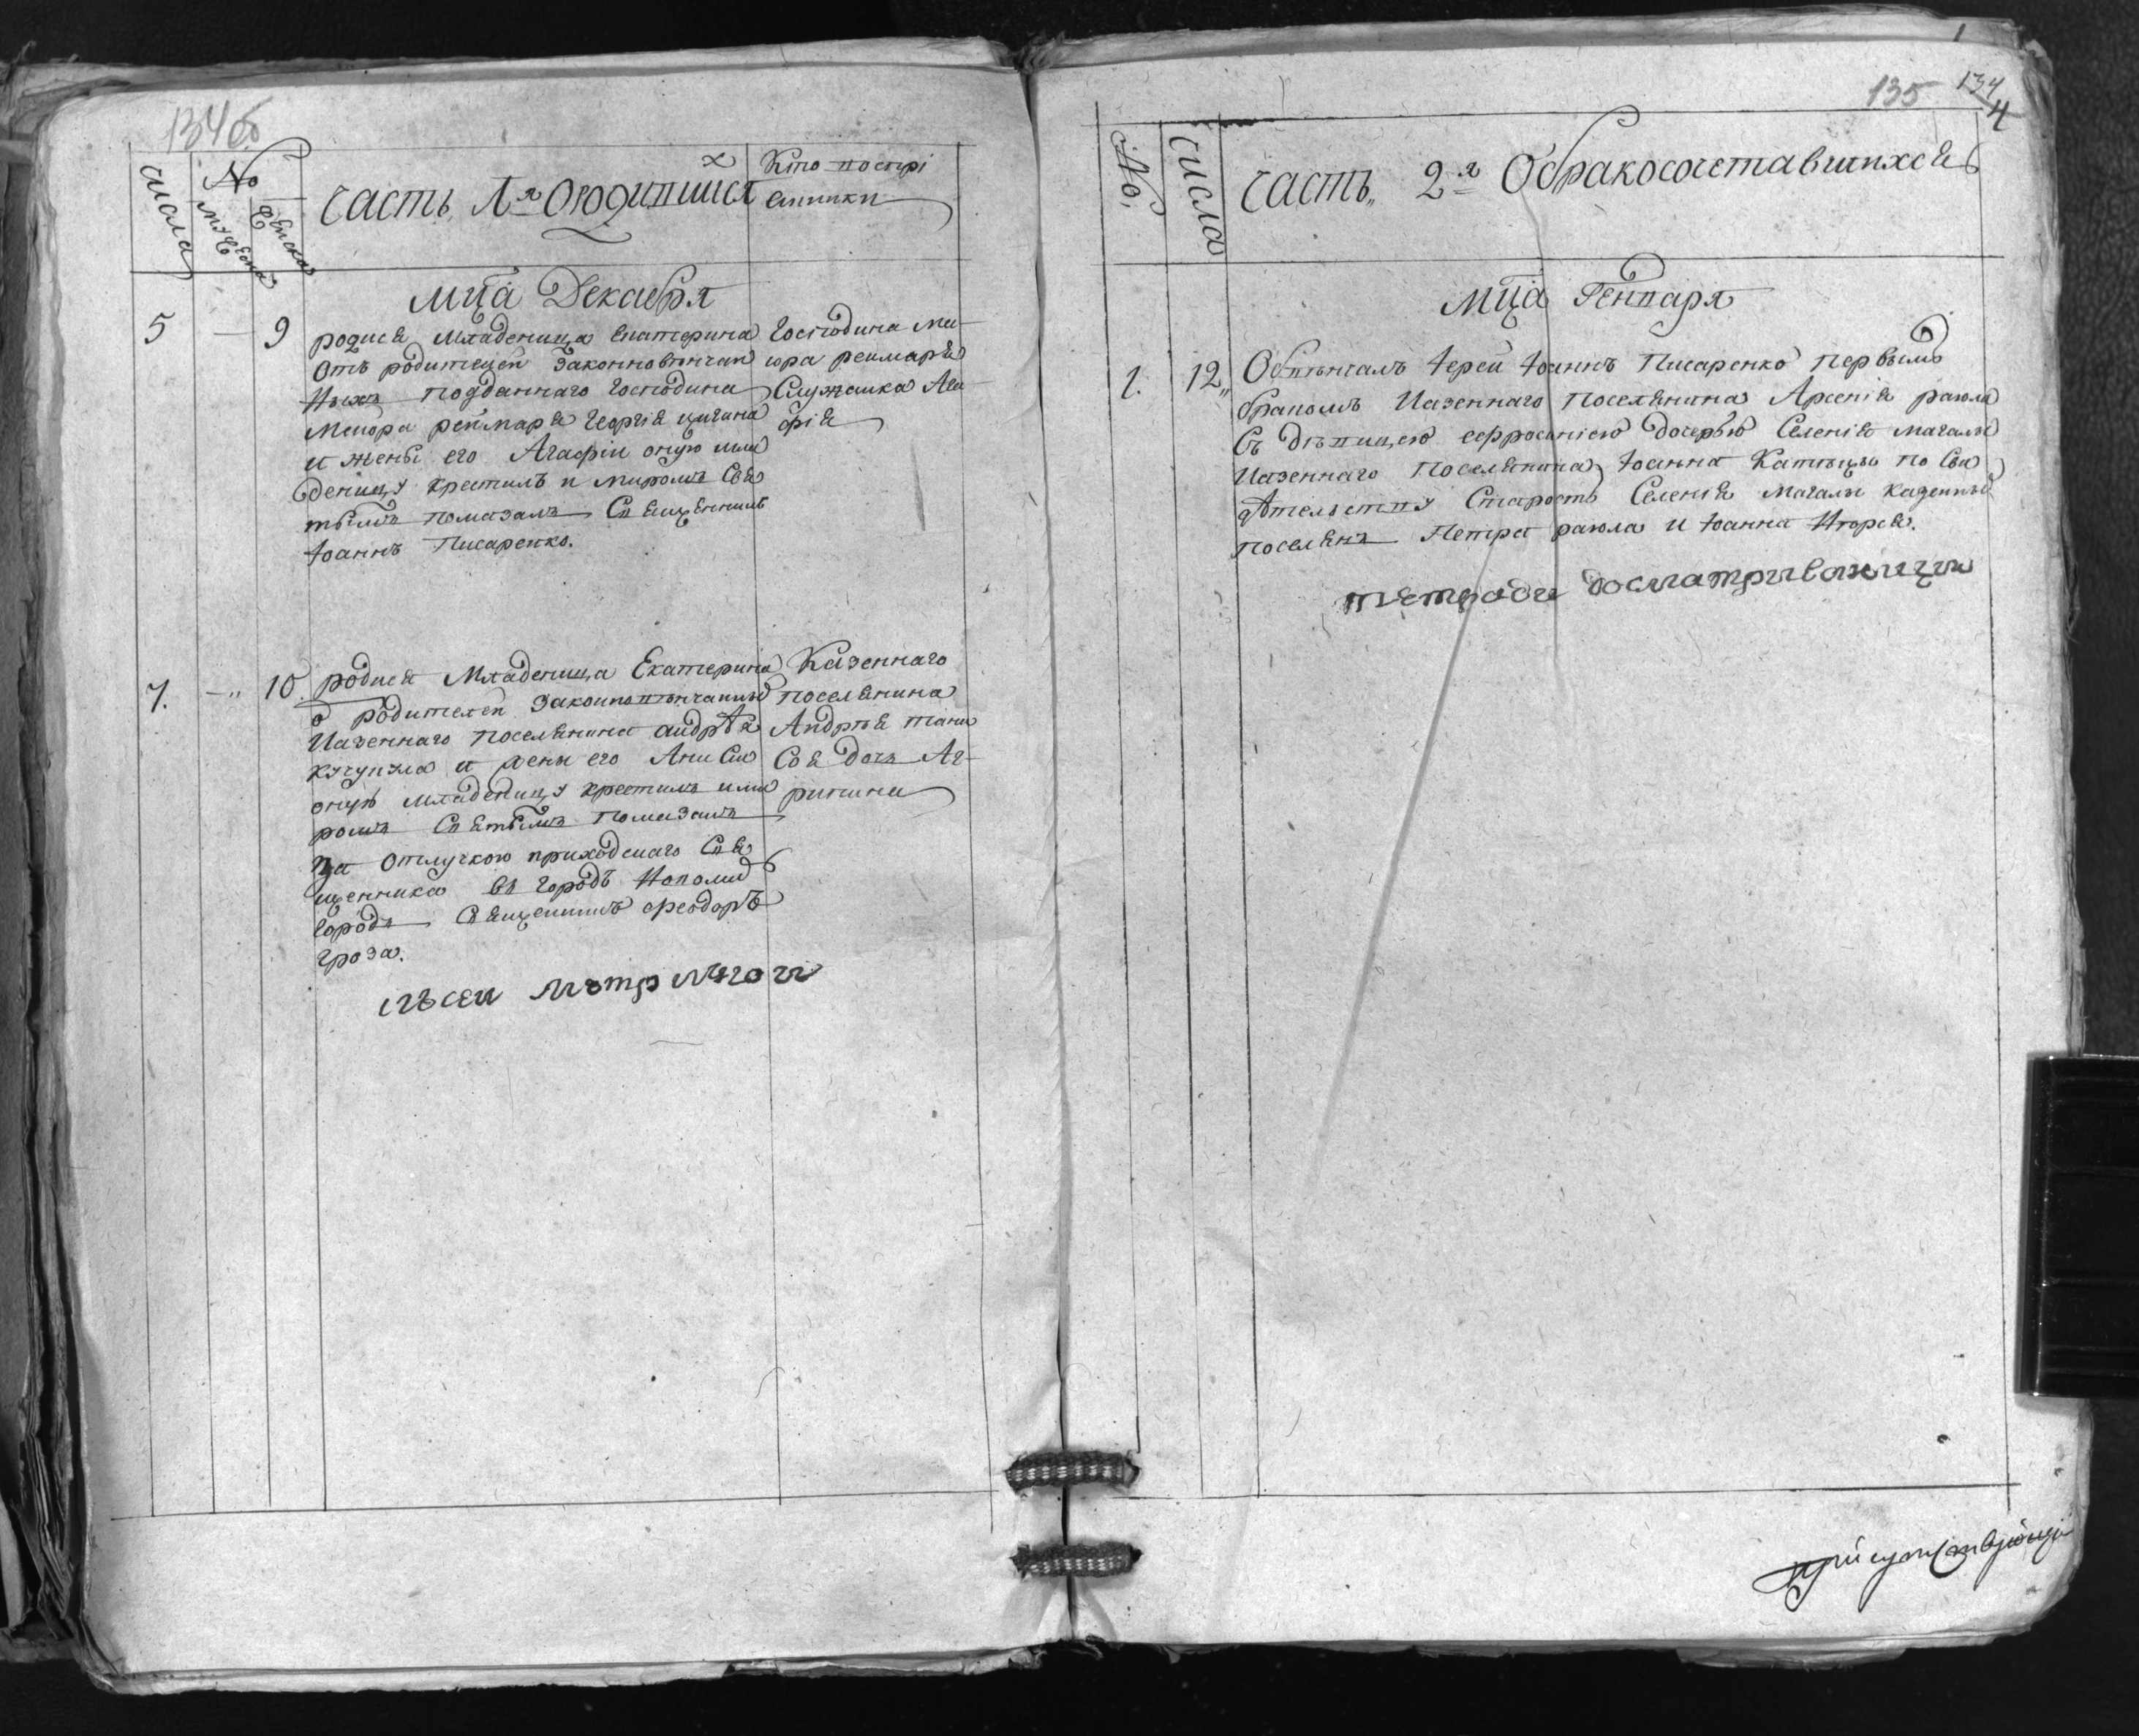 134 об
числа
№
Мужеска
Женска
Часть 1я О родившихся
Кто воспрі
емники
Мца Декабря
5 — 9 родися младеница Екатерина
отъ родителей законновѣнчан
ныхъ подданнаго господина
Меиора реймаря Георгія цигана
и жены его Агафіи оную мла
деницу крестилъ и миромъ Свя
тымъ помазалъ Священникъ
Іоаннъ Писаренко.
Господина Ме
иора реймаря
Служашка Ага
фія
7. — 10. родися Младеница Екатерина
ѿ родителей законновѣнчаныхъ
казеннаго поселянина андрѣя
и жены его Анисіи
оную младеницу крестилъ и ми
ромъ Святымъ помазалъ
за отлучкою приходскаго Свя
щенника въ городъ Новомир
городъ Священникъ Феодоръ
Гроза.
Казеннаго
поселянина
Андрѣя
дочь Аг
рипина
къ сей
135
134
4
№.
числа
Часть 2я О бракосочетавшихся
Мца Генваря
1. 12 Обвѣнчалъ Іерей Іоаннъ Писаренко первымъ
бракомъ казеннаго поселянина Арсенія раюла
съ дѣвицею Ефросиніею дочерью Селенія магалы
казеннаго поселянина Іоанна по сви
дѣтельству Старость Селенія магалы казенныхъ
поселянъ Петра раюла и Іоанна
тетради